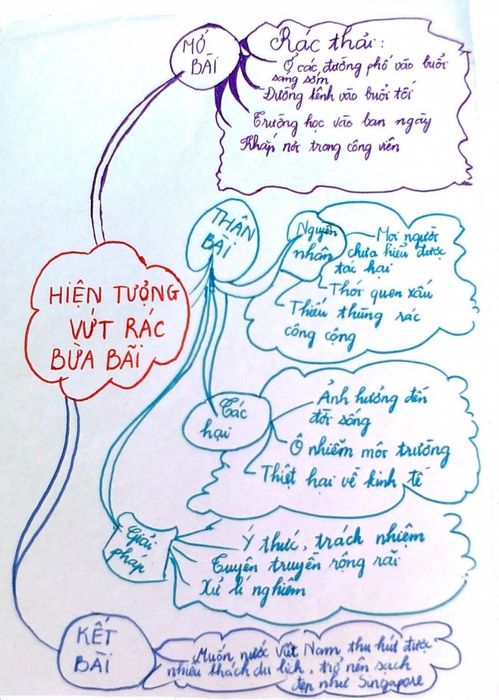 MỞ
BÀI
Rác thải:
Ở các đường phố vào buổi
sáng sớm
Đường lênh vào buổi tối
Trường học vào ban ngày
Khắp nơi trong công viên
HIỆN TƯỢNG
VỨT RÁC
BỪA BÃI
THÂN
BÀI
Nguyên
nhân
Mọi người
chưa hiểu được
tác hại
Thói quen xấu
Thiếu thùng rác
công cộng
Tác
hại
Ảnh hưởng đến
đời sống
Ô nhiễm môi trường
Thiệt hại về kinh tế
Giải
pháp
Ý thức, trách nhiệm
Tuyên truyền rộng rãi
Xử lí nghiêm
KẾT
BÀI
Muốn nước Việt Nam thu hút được
nhiều khách du lịch, trở nên sạch
đẹp như Singapore